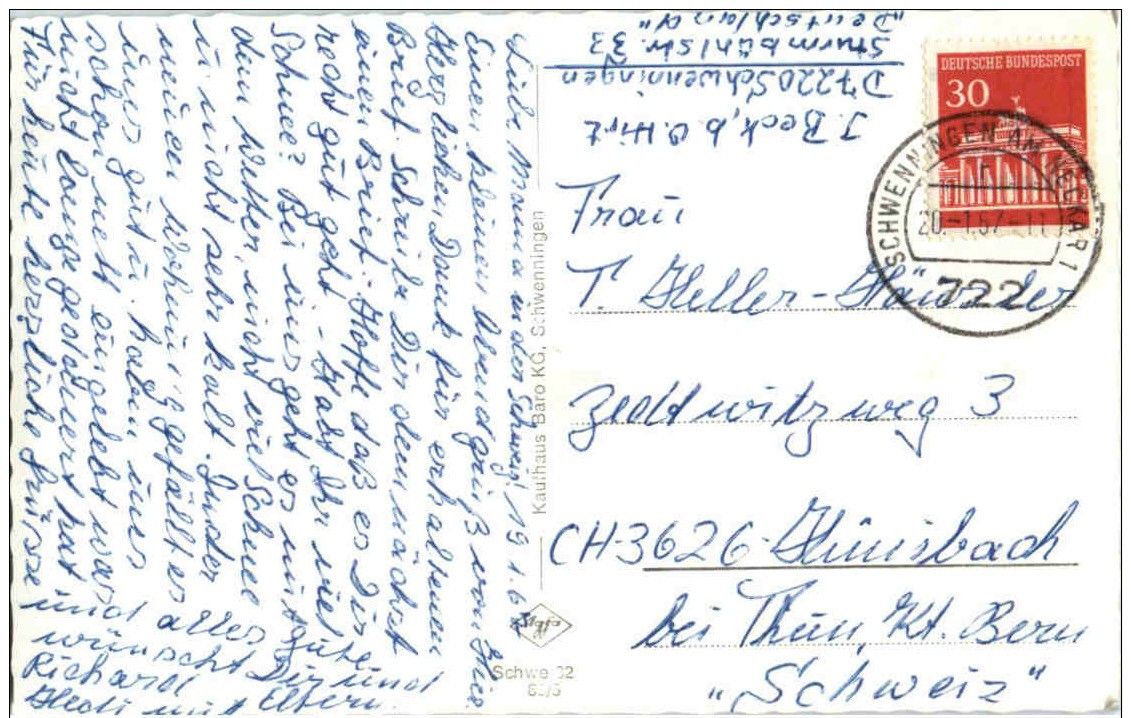 Liebe Mama in der Schweiz! 19.1.67
Einen kleinen Abendgruß von hier.
Herzlichen Dank für erhaltenen
Brief. Schreibe Dir demnächst
einen Brief. Hoffe daß es Dir
recht gut geht - Habt Ihr viel
Schnee? Bei uns geht es mit
dem Wetter, nicht viel Schnee
u. nicht sehr kalt. In der
neuen Wohnung gefällt es
uns gut u. haben uns
schon nett eingelebt was
nicht lange gedauert hat
Für heute herzliche Grüsse
und alles Gute
wünscht Dir und
Richard
Hedi mit Eltern.
Kaufhaus Baro KG, Schwenningen
Agfa
Schwe 32
J. Beck, b. O. Hirt
D 7220 Schwenningen
Sturmbühlstr. 33
"Deutschland"
DEUTSCHE BUNDESPOST
30
SCHWENNINGEN AM NECKAR 1
20.-1.67.-11
722
Frau
T. Heller-Häusler
Zedtwitzweg 3
CH-3626-Hünibach
bei Thun, Kt. Bern
"Schweiz"